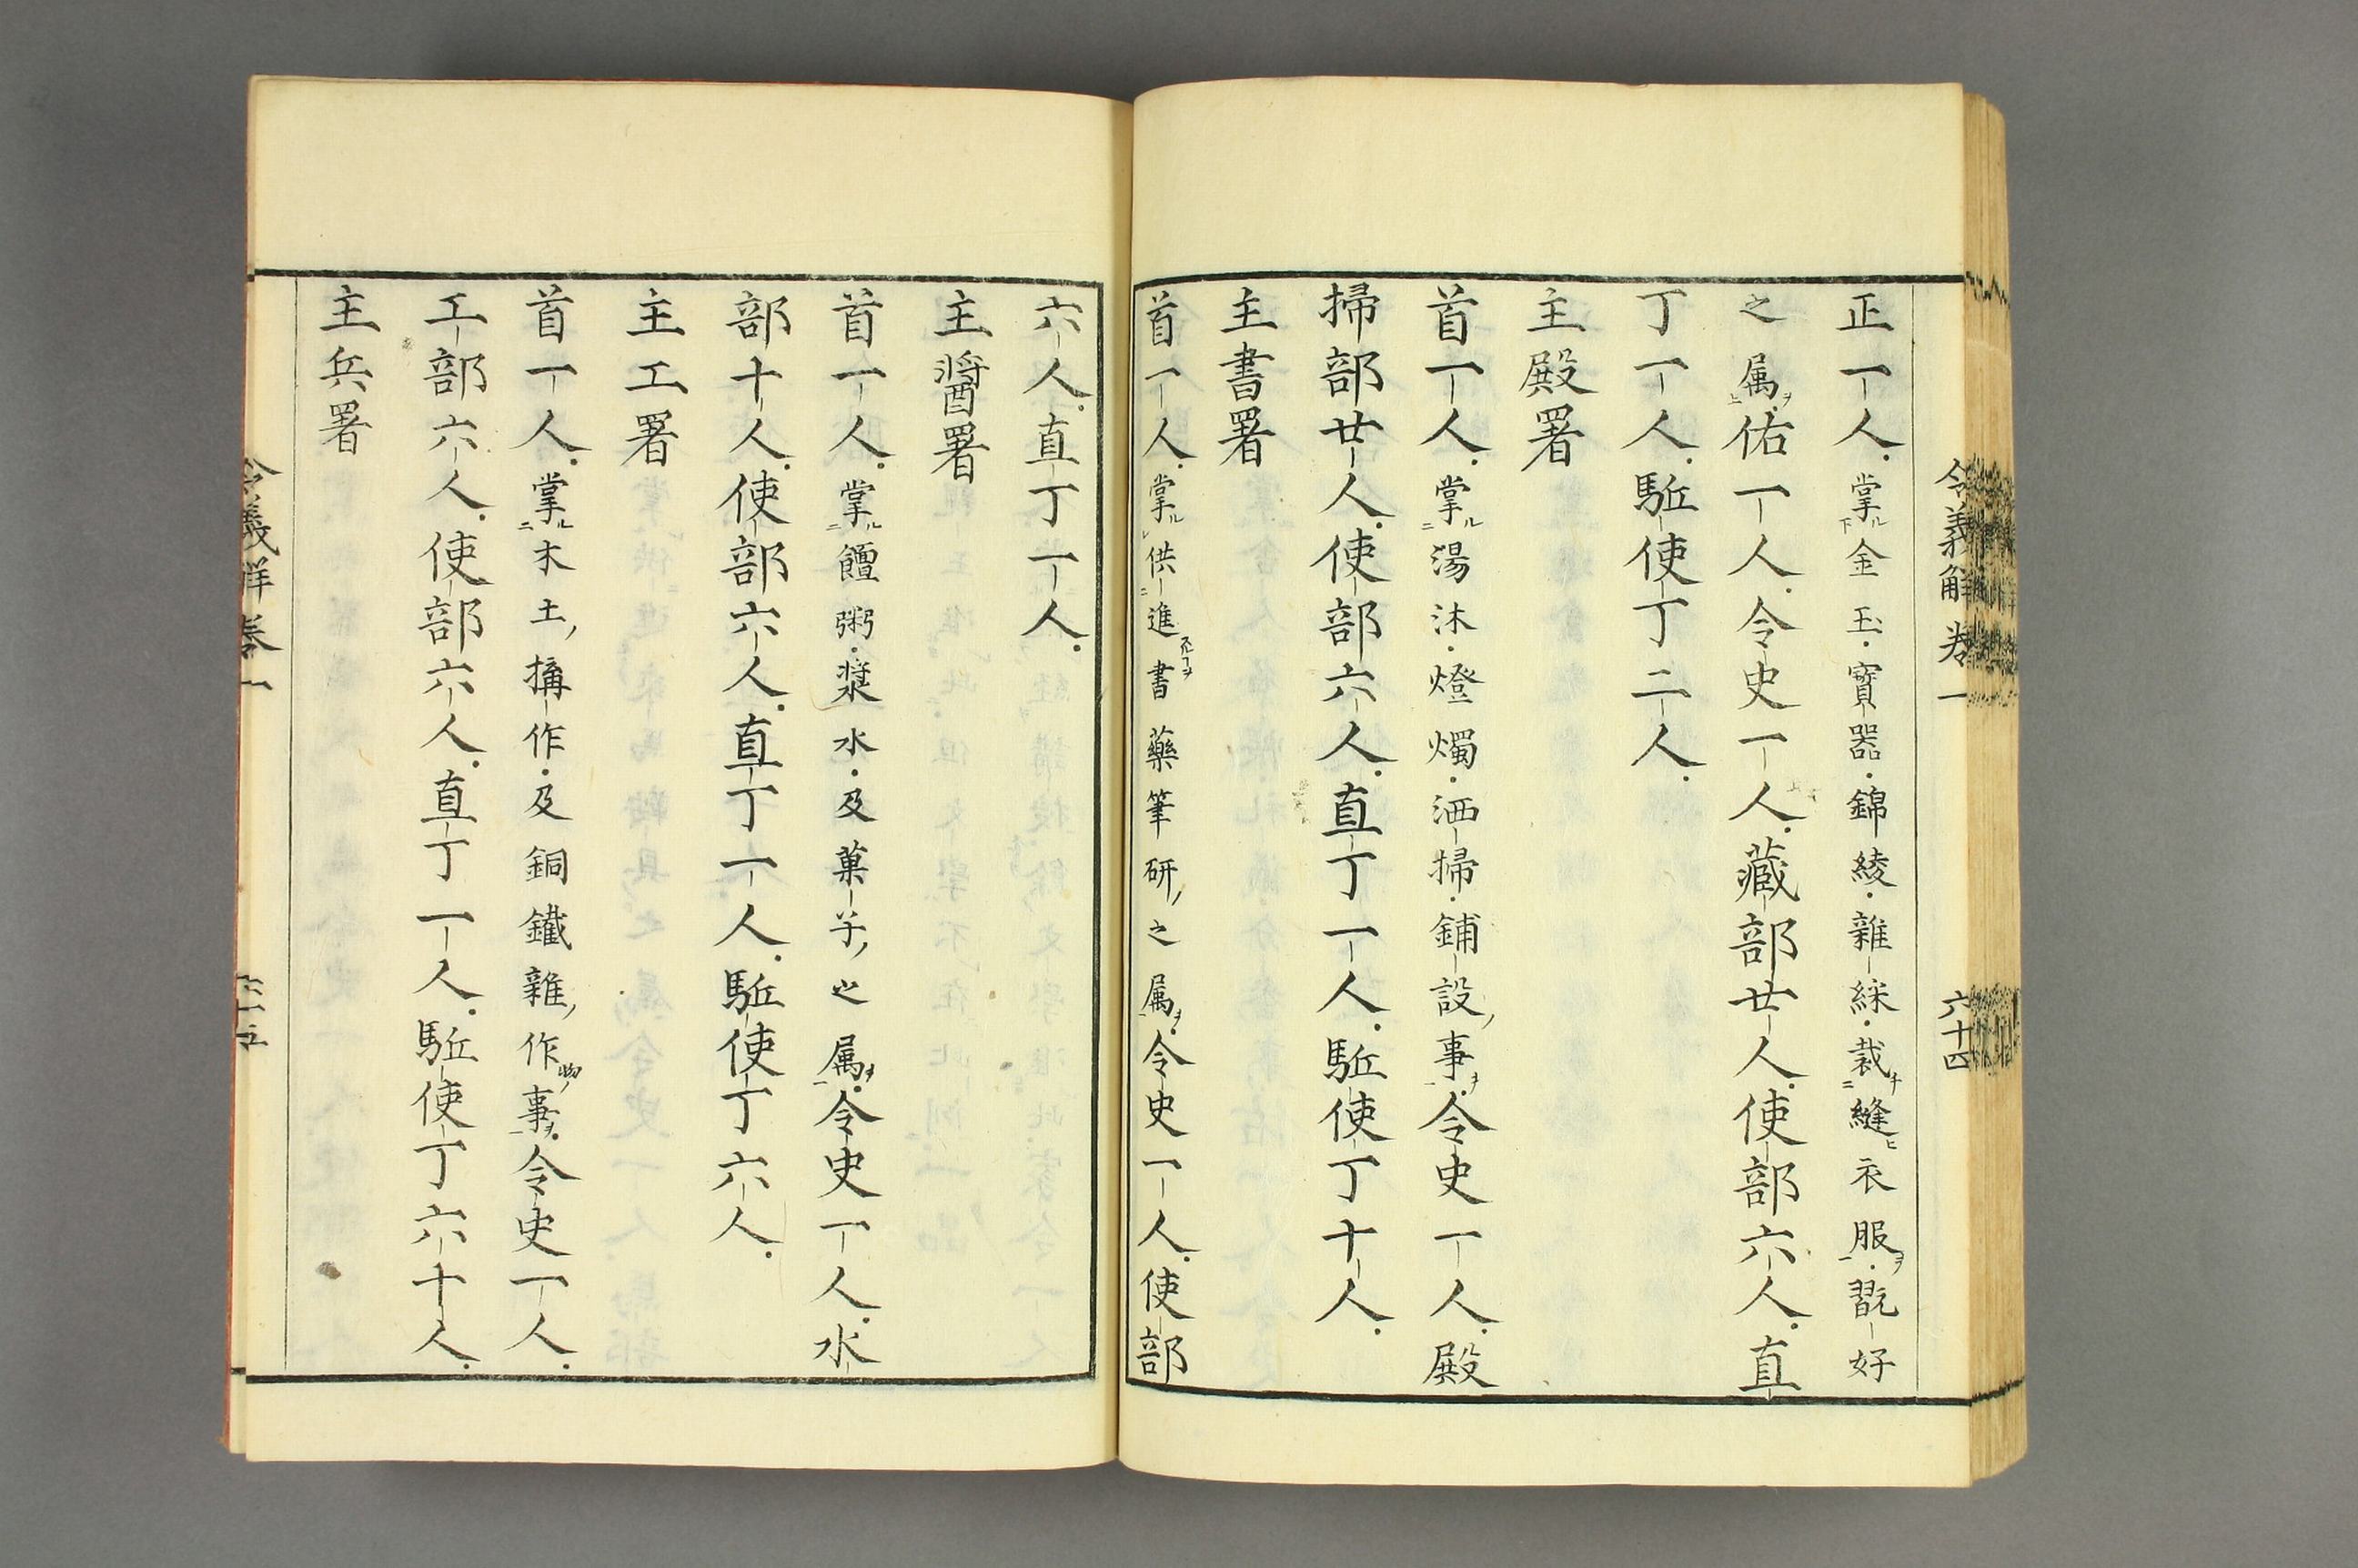 令義解卷一　六十四
正一人。掌ル下金玉・寶器・錦綾・雜綵・裁チ二縫ヒ衣服ヲ一・翫好
之属ヲ上。佑一人。令史一人。藏部廿人。使部六人。直
丁一人。駈使丁二人。
主殿署
首一人。掌ル二湯沐・燈燭・洒掃・鋪設，事ヲ一。令史一人。殿
掃部廿人。使部六人。直丁一人。駈使丁十人。
主書署
首一人。掌ルレ供二進書藥筆研，之属ヲ一。令史一人。使部
六人。直丁一人。
主醬署
首一人。掌ル二饘粥・漿水・及菓子，之属ヲ一。令史一人。水
部十人。使部六人。直丁一人。駈使丁六人。
主工署
首一人。掌ル二木土，搆作・及銅鐵雜，作物，事ヲ一。令史一人。
工部六人。使部六人。直丁一人。駈使丁六十人。
主兵署
令義解卷一